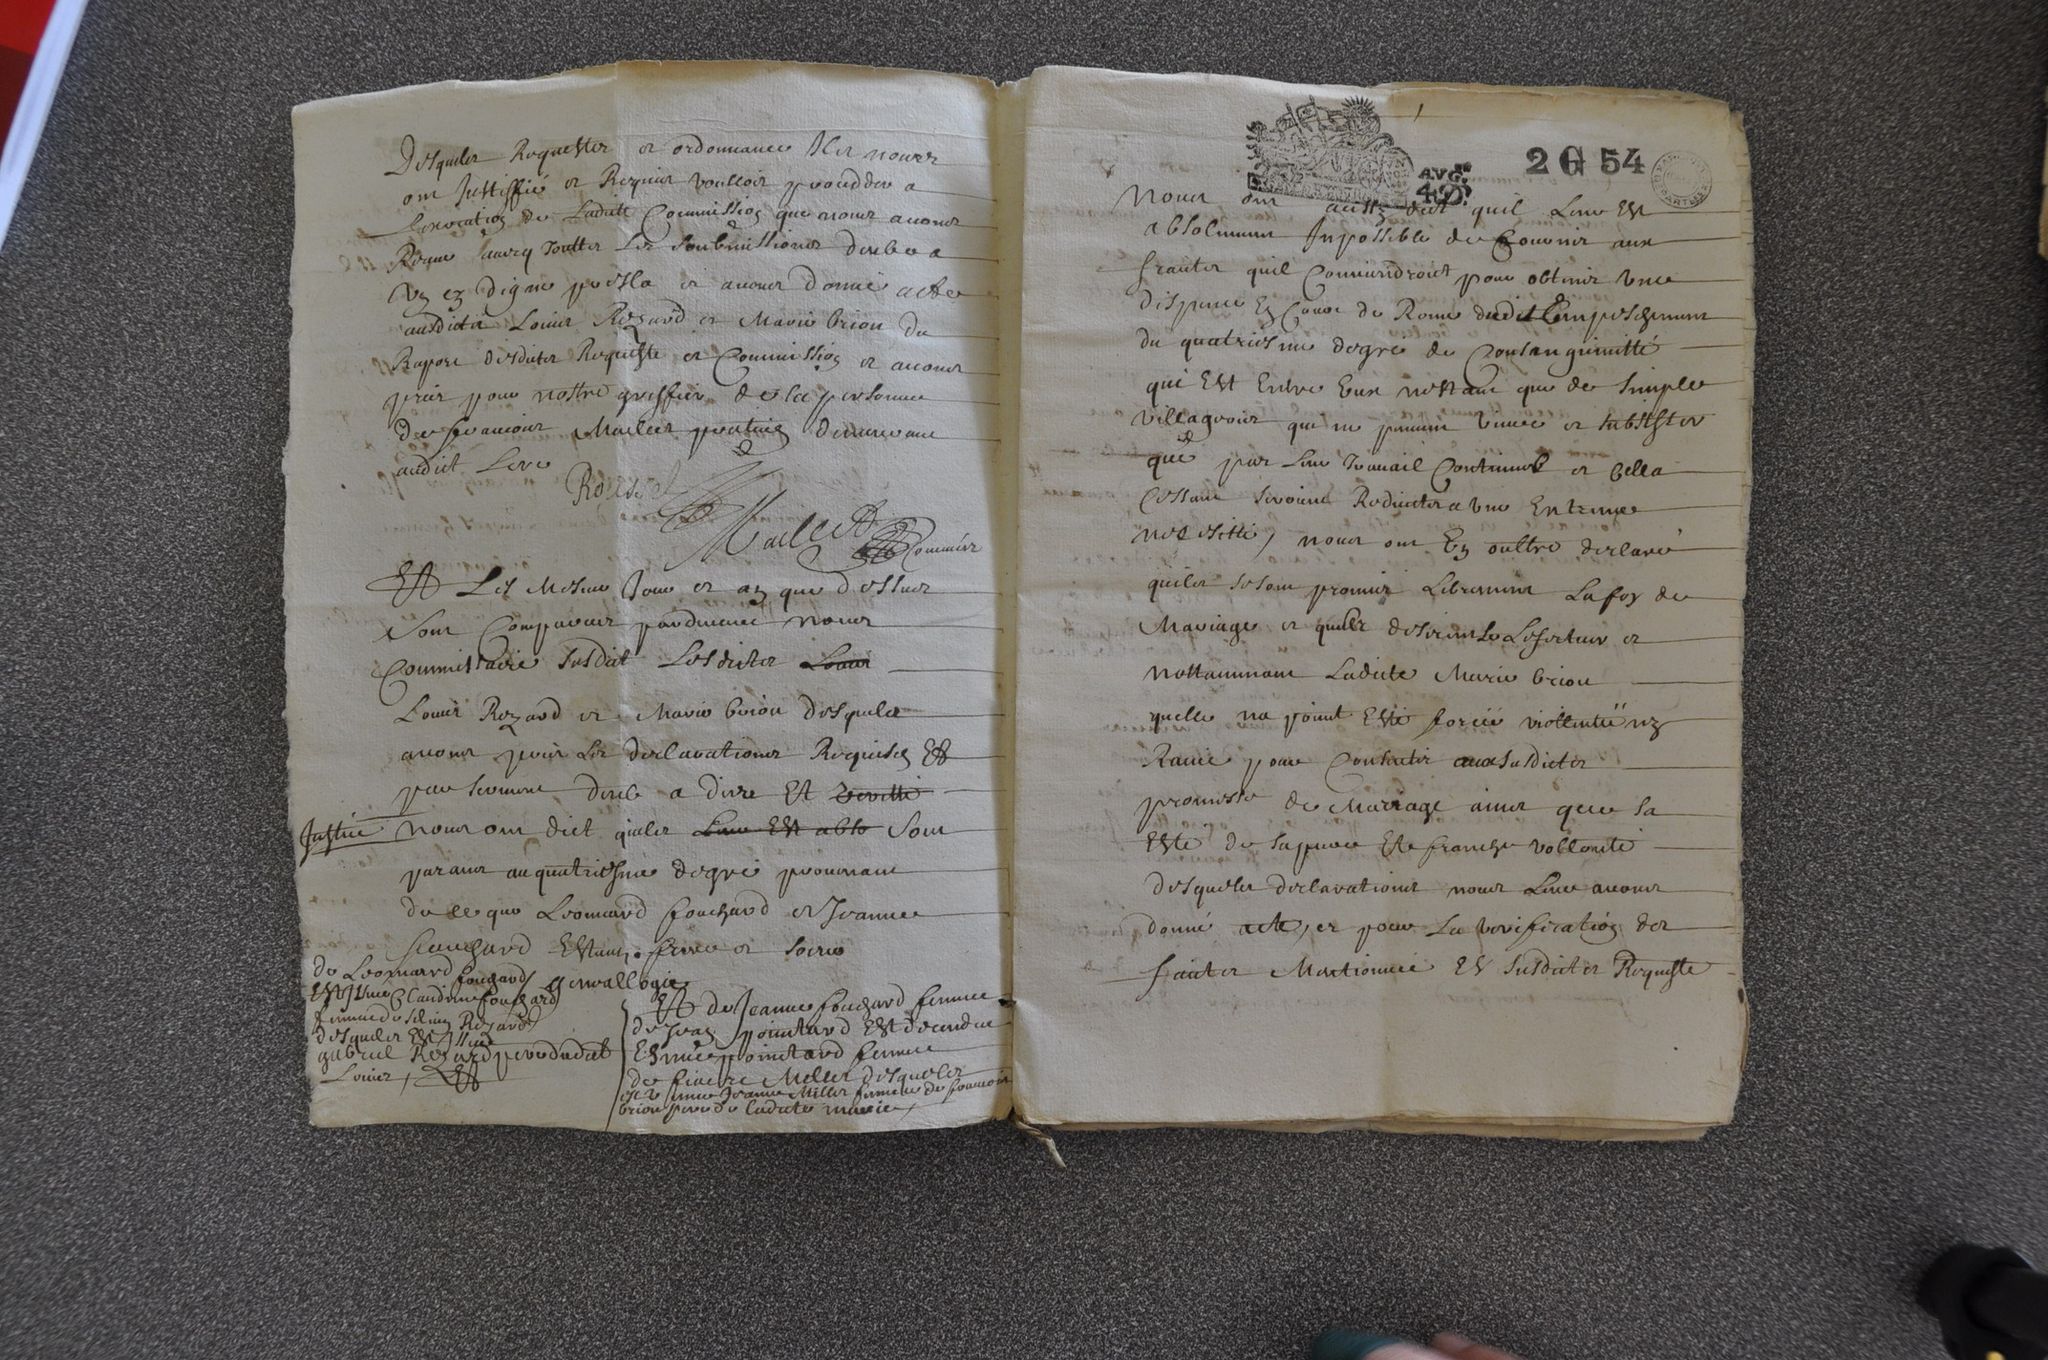 Desqueles Requestes et ordonnance Iles nous
ont Justiffié et Requis voulloir proceddee a
Lexecution de Ladite Commission que nous avons
Receue avecq touttes Les soubmissions deube a
digne et avons donné acte
ausdicts Louis Rezard et Marie brion du
Raport desdictes Requeste et Commission et avons
pris pour nostre greffier de la personne
de francois Maclet praticien demeurant
audict Lere
Roussel
Maclet
Commissre
Et Les Mesme Jour et an que dessus
Sont Comparus pardevant nous
Commissaire susdict Lesdictes Louis
Louis Rezard et Marie brion desquels
avons pris Les declarations Requises Et
par serment deub a dire Et veritté
Justice nous ont dict quiles Leur Est abso sont
parans au quatriesme degré provenant
de ce que Leonnard fouchard et Jeanne
fouchard Estans frere et soeur
geneallogie
de Leonnard fouchard
Est Issue Claudine fouchard
femme de Silvin Rezard
desqueles Est Issue
gabriel Rezard pere dudict
Louis, Et
Et de Jeanne fouchard femme
de Jean pointard Est decendue
Esmée pointard femme
de Millet desqueles
est issue Jeanne Millet femme de francois
brion pere de ladicte marie
2 G 54
AVG.
4 S
Nous ont aussy dict quil Leur Est
absolument Inpossible de Couvenir aux
fraites quil Conviendroict pour obtenir une
dispance En Cour de Rome dudict Empeschement
du quatriesme degré de Consanguinitté
qui Est Entre Eux nestant que de simples
villageois qui ne peuvent vivre et subsister
que par Leur travail Continuel et Cella
Cessant seroient Redsuictes a une Extresme
necessitté, nous ont En oultre declaré
quiles se sont promis Librement La foy de
Mariage et quiles desirent Leffectuer et
nottamment Ladicte Marie brion
quelle na point Esté forcéé viollentéé ny
Ravie pour Consentir aux susdictes
promesse de Mariage ains que sa
Esté de sa pure Et franche vollonté
desqueles declarations nous Leur avons
donné acte, et pour La verification des
faites Mentionnée Es susdictes Requeste